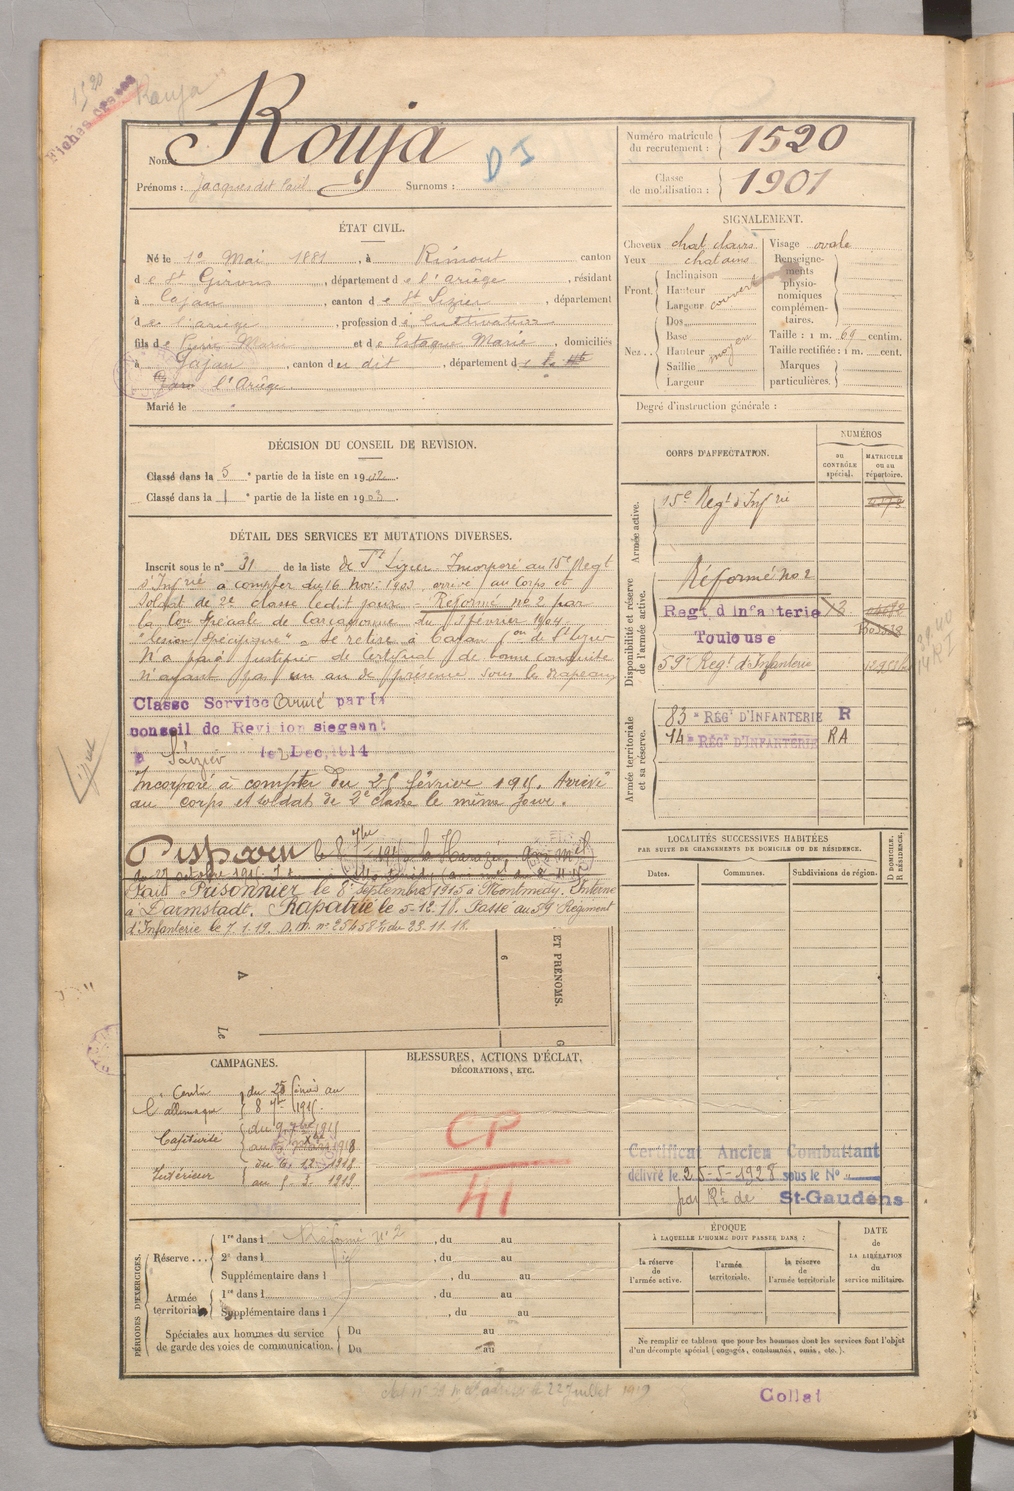 1520
Fiches
Rouja
Nom : Rouja
DI
Prénoms : Jacques dit Paul Surnoms :
Numéro matricule du recrutement : 1520
Classe de mobilisation : 1901
ÉTAT CIVIL.
Né le 1er Mai 1881, à Rimont canton
de St Girons, département de l'Ariège, résidant
à Cajan, canton de St Lizier, département
de l'ariège, profession de Cultivateur
fils de Marie et de Estaque Marie, domiciliés
à Gajan, canton du dit, département de
l'Ariège.
Marié le
SIGNALEMENT.
Cheveux chat clairs
Yeux chatains
Front. Inclinaison
Hauteur
Largeur couvert
Nez. Dos
Base
Hauteur moyen
Saillie
Largeur
Visage ovale
Renseignements physionomiques complémentaires.
Taille : 1 m. 69 centim.
Taille rectifiée : 1 m. cent.
Marques particulières.
Degré d'instruction générale :
DÉCISION DU CONSEIL DE REVISION.
Classé dans la 5e partie de la liste en 1902.
Classé dans la 1e partie de la liste en 1903.
DÉTAIL DES SERVICES ET MUTATIONS DIVERSES.
Inscrit sous le n° 31 de la liste de St Lizier. Incorporé au 15e Regt
d'Infrie à compter du 16 Nov. 1903 arrivé au corps et
soldat de 2e classe ledit jour. Réformé no 2 par
la Con Spéciale de Carcassonne du 3 février 1904.
"lésion Spécifique" Se retire à Cajan con de St Lizier
N'a pas justifié de Certificat de bonne conduite
n'ayant pas un an de présence sous les drapeaux
Classé Service Armé par le
conseil de Revision siegeant
à St Lizier le 2 Dec. 1914
Incorporé à compter du 25 février 1915. Arrivé
au corps et soldat de 2e classe le même jour.
Disparu le 8 7bre 1915 la Harazée,
du 27 octobre 1915.
Fait Prisonnier le 8 septembre 1915 à Montmedy. Interné
à Darmstadt. Rapatrié le 5-12-18. Passé au 59e Régiment
d'Infanterie le 7.1.19. D.M. n° 25458 du 23.11.18.
ET PRÉNOMS.
6
A
Le
CORPS D'AFFECTATION.
NUMÉROS
au CONTRÔLE spécial.
MATRICULE ou au répertoire.
Armée active.
15e Regt d'Infrie
Disponibilité et réserve de l'armée active.
Réformé no 2
Regt d infanterie
Toulouse
59e Regt d'Infanterie
Armée territoriale et sa réserve.
83e RÉGt D'INFANTERIE R
14e RÉGt D'INFANTERIE RA
LOCALITÉS SUCCESSIVES HABITÉES
PAR SUITE DE CHANGEMENTS DE DOMICILE OU DE RÉSIDENCE.
Dates.
Communes.
Subdivisions de région.
D DOMICILE.
R RÉSIDENCE.
Certificat Ancien Combattant
délivré le 25-5-1928 sous le No
par Rt de St-Gaudens
CAMPAGNES.
Contre l'allemagne du 25 février au 8 7bre 1915.
Captivité du 9 7bre 1915
1918
Intérieur du 6. 12. 1918.
au 5. 3. 1919
BLESSURES, ACTIONS D'ÉCLAT,
DÉCORATIONS, ETC.
CP
41
PÉRIODES D'EXERCICES.
Réserve...
1re dans l Réformé n° 2, du au
2e dans l, du au
Supplémentaire dans l, du au
Armée territoriale
1re dans l, du au
Supplémentaire dans l, du au
Spéciales aux hommes du service de garde des voies de communication. Du au
Du au
ÉPOQUE
À LAQUELLE L'HOMME DOIT PASSER DANS :
la réserve de l'armée active.
l'armée territoriale.
la réserve de l'armée territoriale
DATE de LA LIBÉRATION du service militaire.
Ne remplir ce tableau que pour les hommes dont les services font l'objet
d'un décompte spécial (engagés, condamnés, omis, etc.).
22 Juillet 1919
Collat